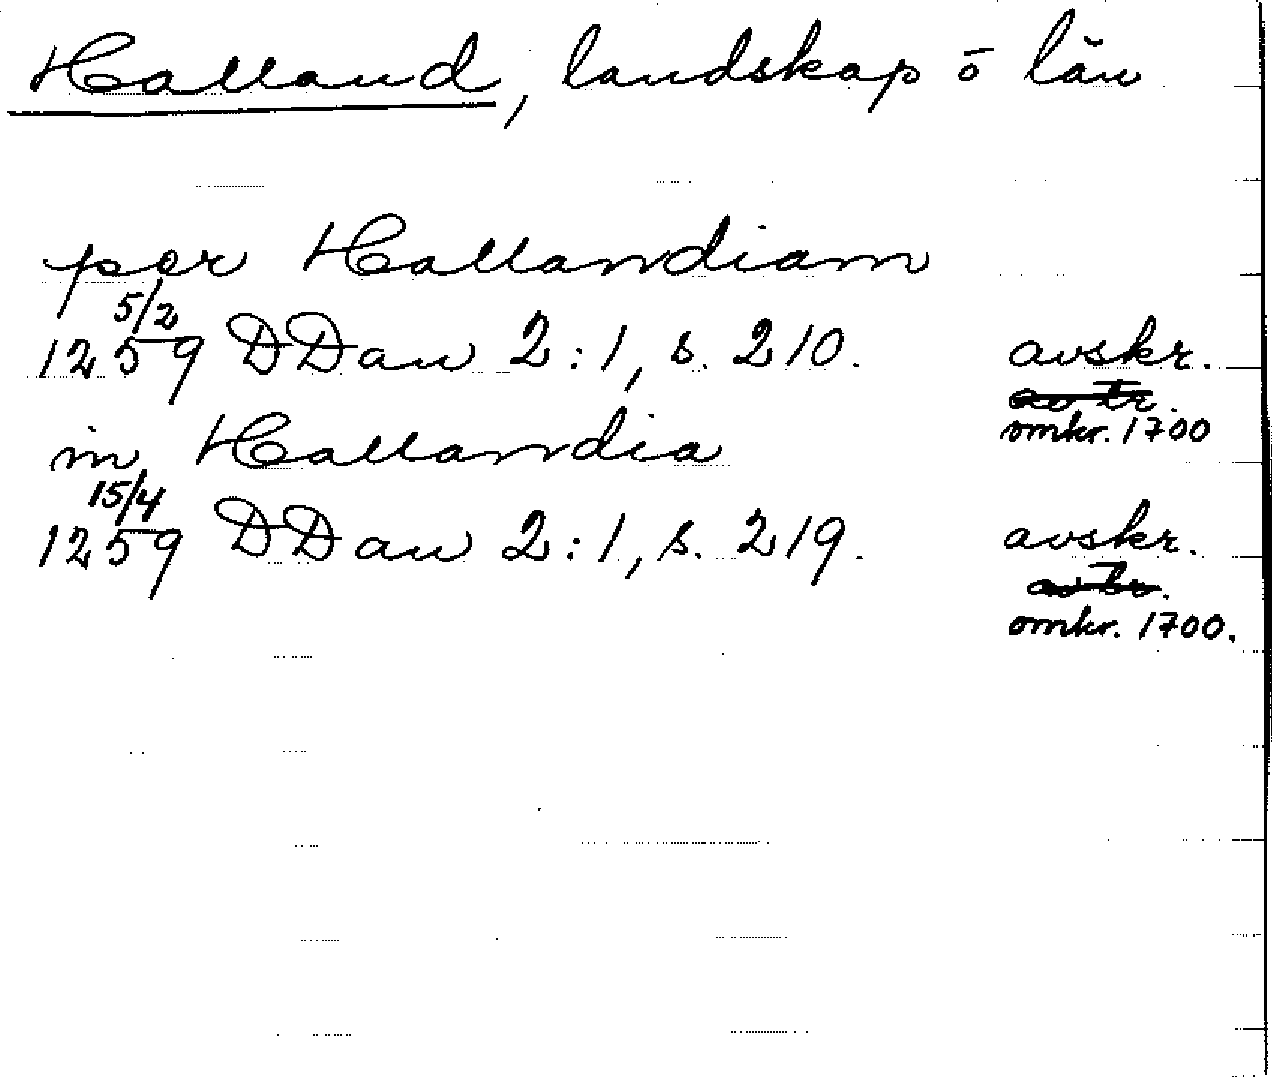 Halland, landskap o län
per Hallandiam
5/2
1259 DDan 2:1, s. 210. avskr.
omkr. 1700
in Hallandia
15/4
1259 DDan 2:1, s. 219. avskr.
omkr. 1700.